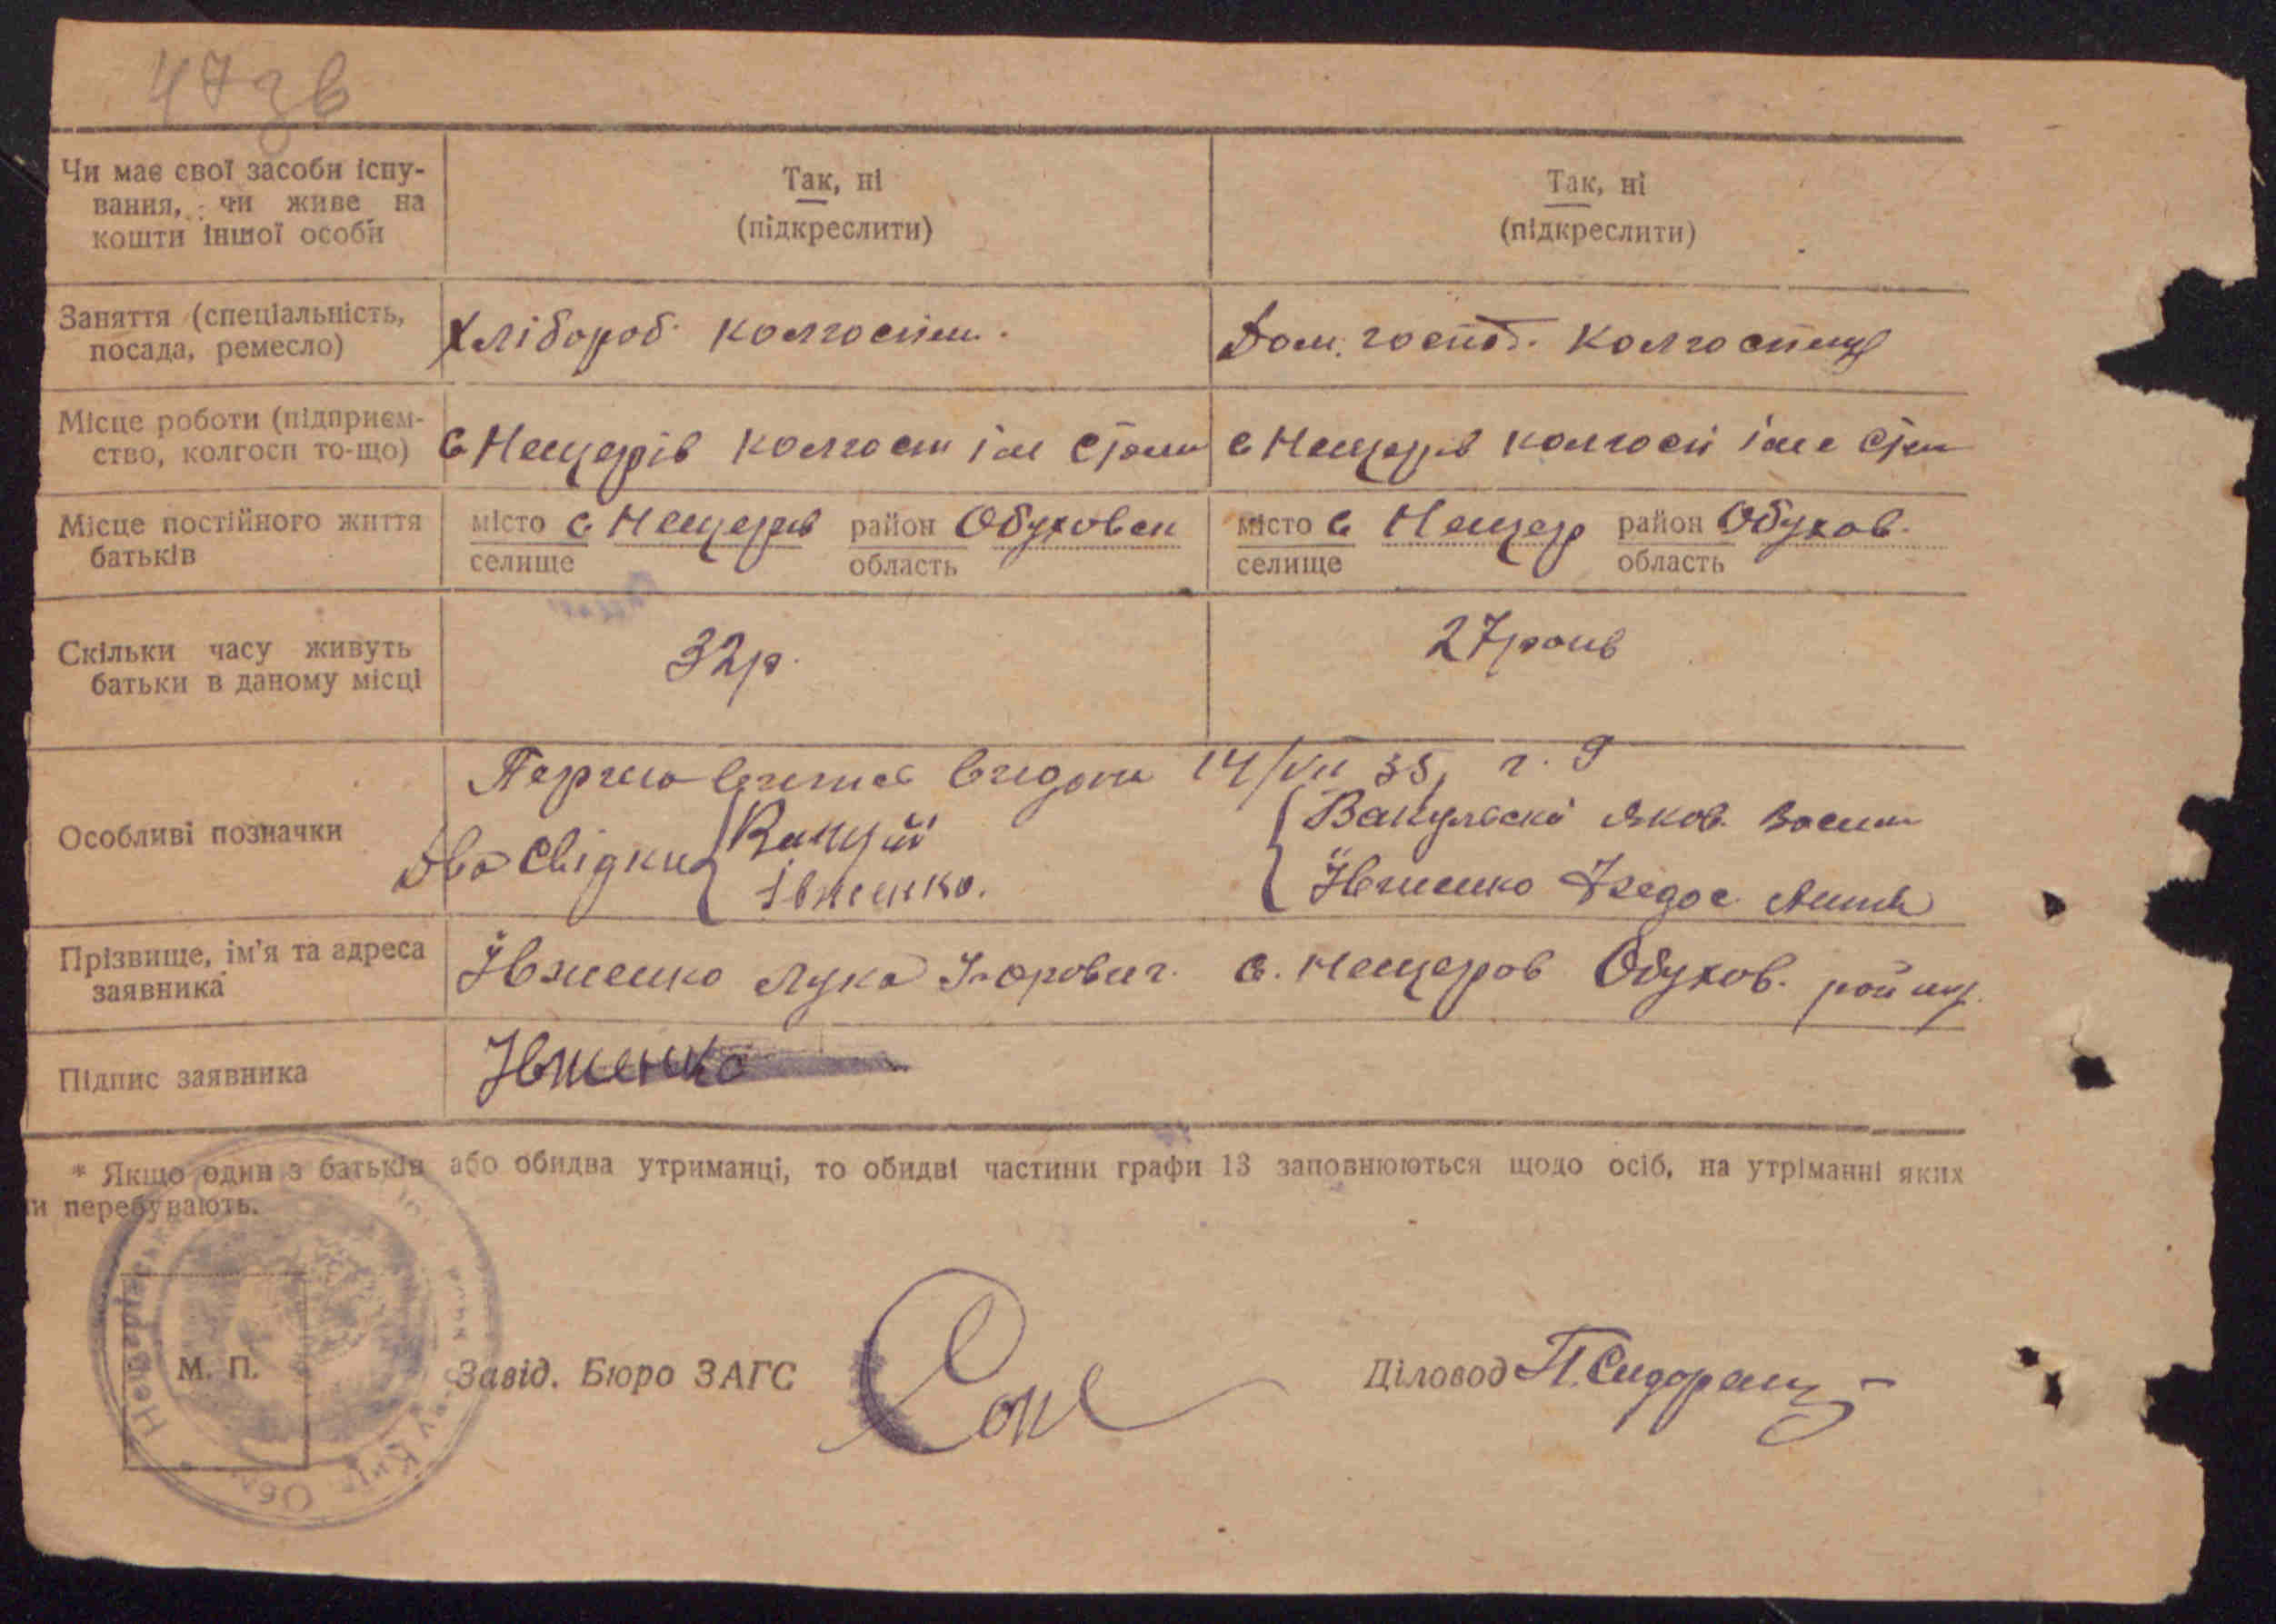 47зв
Чи має свої засоби існу-
вання, чи живе на
кошти іншої особи
Так, ні
(підкреслити)
Так, ні
(підкреслити)
Заняття (спеціальність,
посада, ремесло)
Хлібороб колгоспн.
Дом. госпо. колгоспниця
Місце роботи (підприєм-
ство, колгосп то-що)
с Нещерів колгосп ім
с Нещерів колгосп
Місце постійного життя
батьків
місто с Нещерів район Обуховськ
селище область
місто с Нещер район Обухов.
селище область
Скільки часу живуть
батьки в даному місці
32р.
27 років
Особливі позначки
14/VII 35
Два Свідки
Івженко.
Івженко Хведос
Прізвище, ім'я та адреса
заявника
Івженко Лука с. Нещеров Обухов. району.
Підпис заявника
Івженко
* Якщо один з батьків або обидва утриманці, то обидві частини графи 13 заповнюються щодо осіб, на утріманні яких
ти перебувають.
М. П.
Завід. Бюро ЗАГС
Діловод П. Сидорець